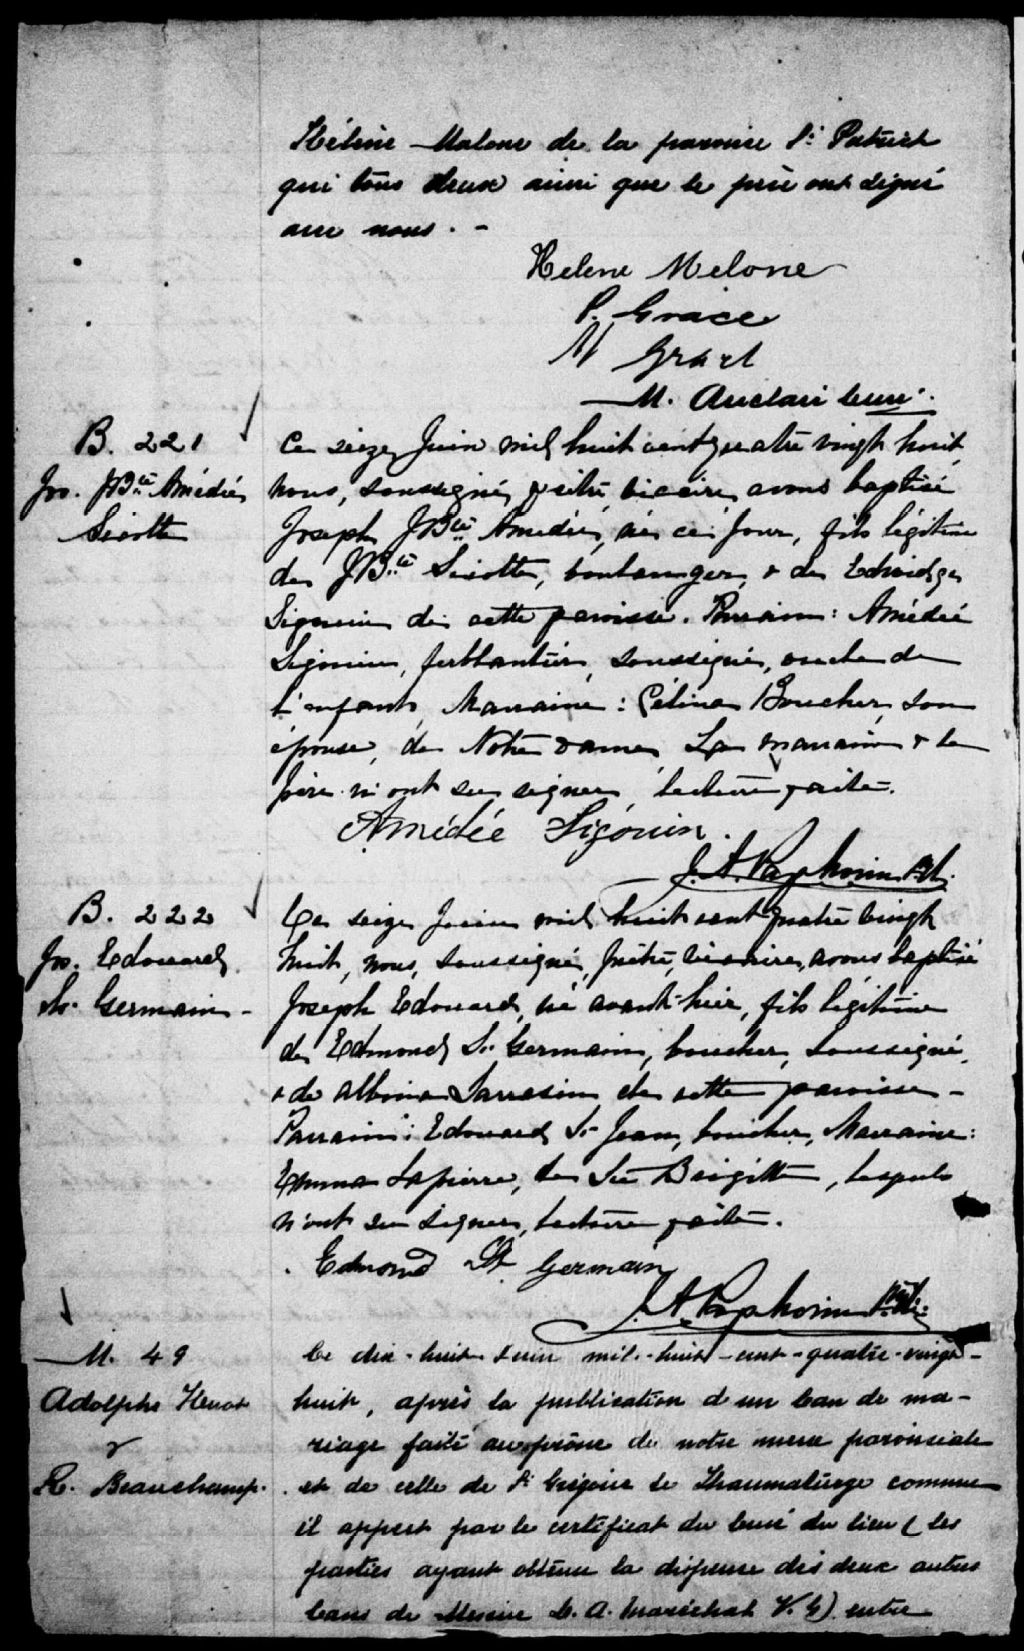 Hélène Malone de la paroisse St Patrick
qui tous deux ainsi que le père ont signé
avec nous. -
Helene Melone
P. Grace
M. Auclair Curé.
B. 221
Jos. JBte Amédée
Sicotte
Ce seize Juin mil huit cent quatre vingt huit,
nous, soussigné, prêtre, vicaire, avons baptisé
Joseph JBte Amédée, né ce jour, fils légitime
de JBte Sicotte, boulanger, & de Edwidge
Sigouin de cette paroisse. Parrain: Amédée
Sigouin, ferblantier, soussigné, oncle de
l'enfant, Marraine: Célina Boucher, son
épouse, de Notre Dame, La marraine & le
père n'ont su signer, lecture faite.
Amédée Sigouin.
J. A. Vaphorin Pt.
B. 222
Jos. Edouard
St. Germain -
Ce seize Juin mil huit cent quatre vingt
huit, nous, soussigné, prêtre, vicaire, avons baptisé
Joseph Edouard, né avant-hier, fils légitime
de Edmond St Germain, boucher, soussigné,
& de Albina Sarrasin de cette paroisse -
Parrain: Edouard St Jean, boucher, Marraine:
Emma Lapierre, de Ste Brigitte, lesquels
n'ont su signer, lecture faite.
Edmond St Germain
J. A. Vaphorin Pt.
M. 49
Adolphe
&
R. Beauchamp.
Le dix-huit Juin mil-huit-cent-quatre-vingt-
huit, après la publication d'un ban de ma-
riage faite au prône de notre messe paroissiale
et de celle de St Grégoire le Thaumaturge comme
il appert par le certificat du curé du lieu (les
parties ayant obtenu la dispense des deux autres
bans de Messire L. A. Maréchal V. G) entre